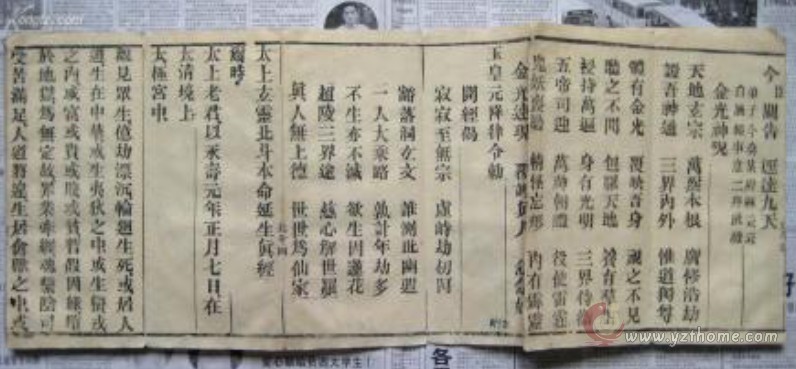 今日關告 逕達九天
金光神咒
天地玄宗 萬炁本根 廣修浩劫
證吾神通 三界內外 惟道獨尊
體有金光 覆映吾身 視之不見
聽之不聞 包羅天地 養育群生
授持萬遍 身有光明 三界侍衛
五帝司迎 萬神朝禮 役使雷霆
鬼妖喪膽 精怪忘形 內有霹靂
金光速現 覆護真人
玉皇元降律令勅
開經偈
寂寂至無宗 虛峙劫仞阿
豁落洞玄文 誰測此幽遐
一入大乘路 孰計年劫多
不生亦不滅 欲生因蓮花
超陵三界途 慈心解世羅
眞人無上德 世世爲仙家
太上玄靈北斗本命延生眞經
爾時
太上老君以永壽元年正月七日在
太清境上
太極宮中
觀見衆生億劫漂沉輪迴生死或居人
道生在中華或生夷狄之中或生蠻戎
之內或富或貴或賤或貧暫假因緣墮
於地獄爲無定故罪業牽纏魂繫陰司
受苦滿足人道將違生居禽獸之中或
各
www.yzthome.com